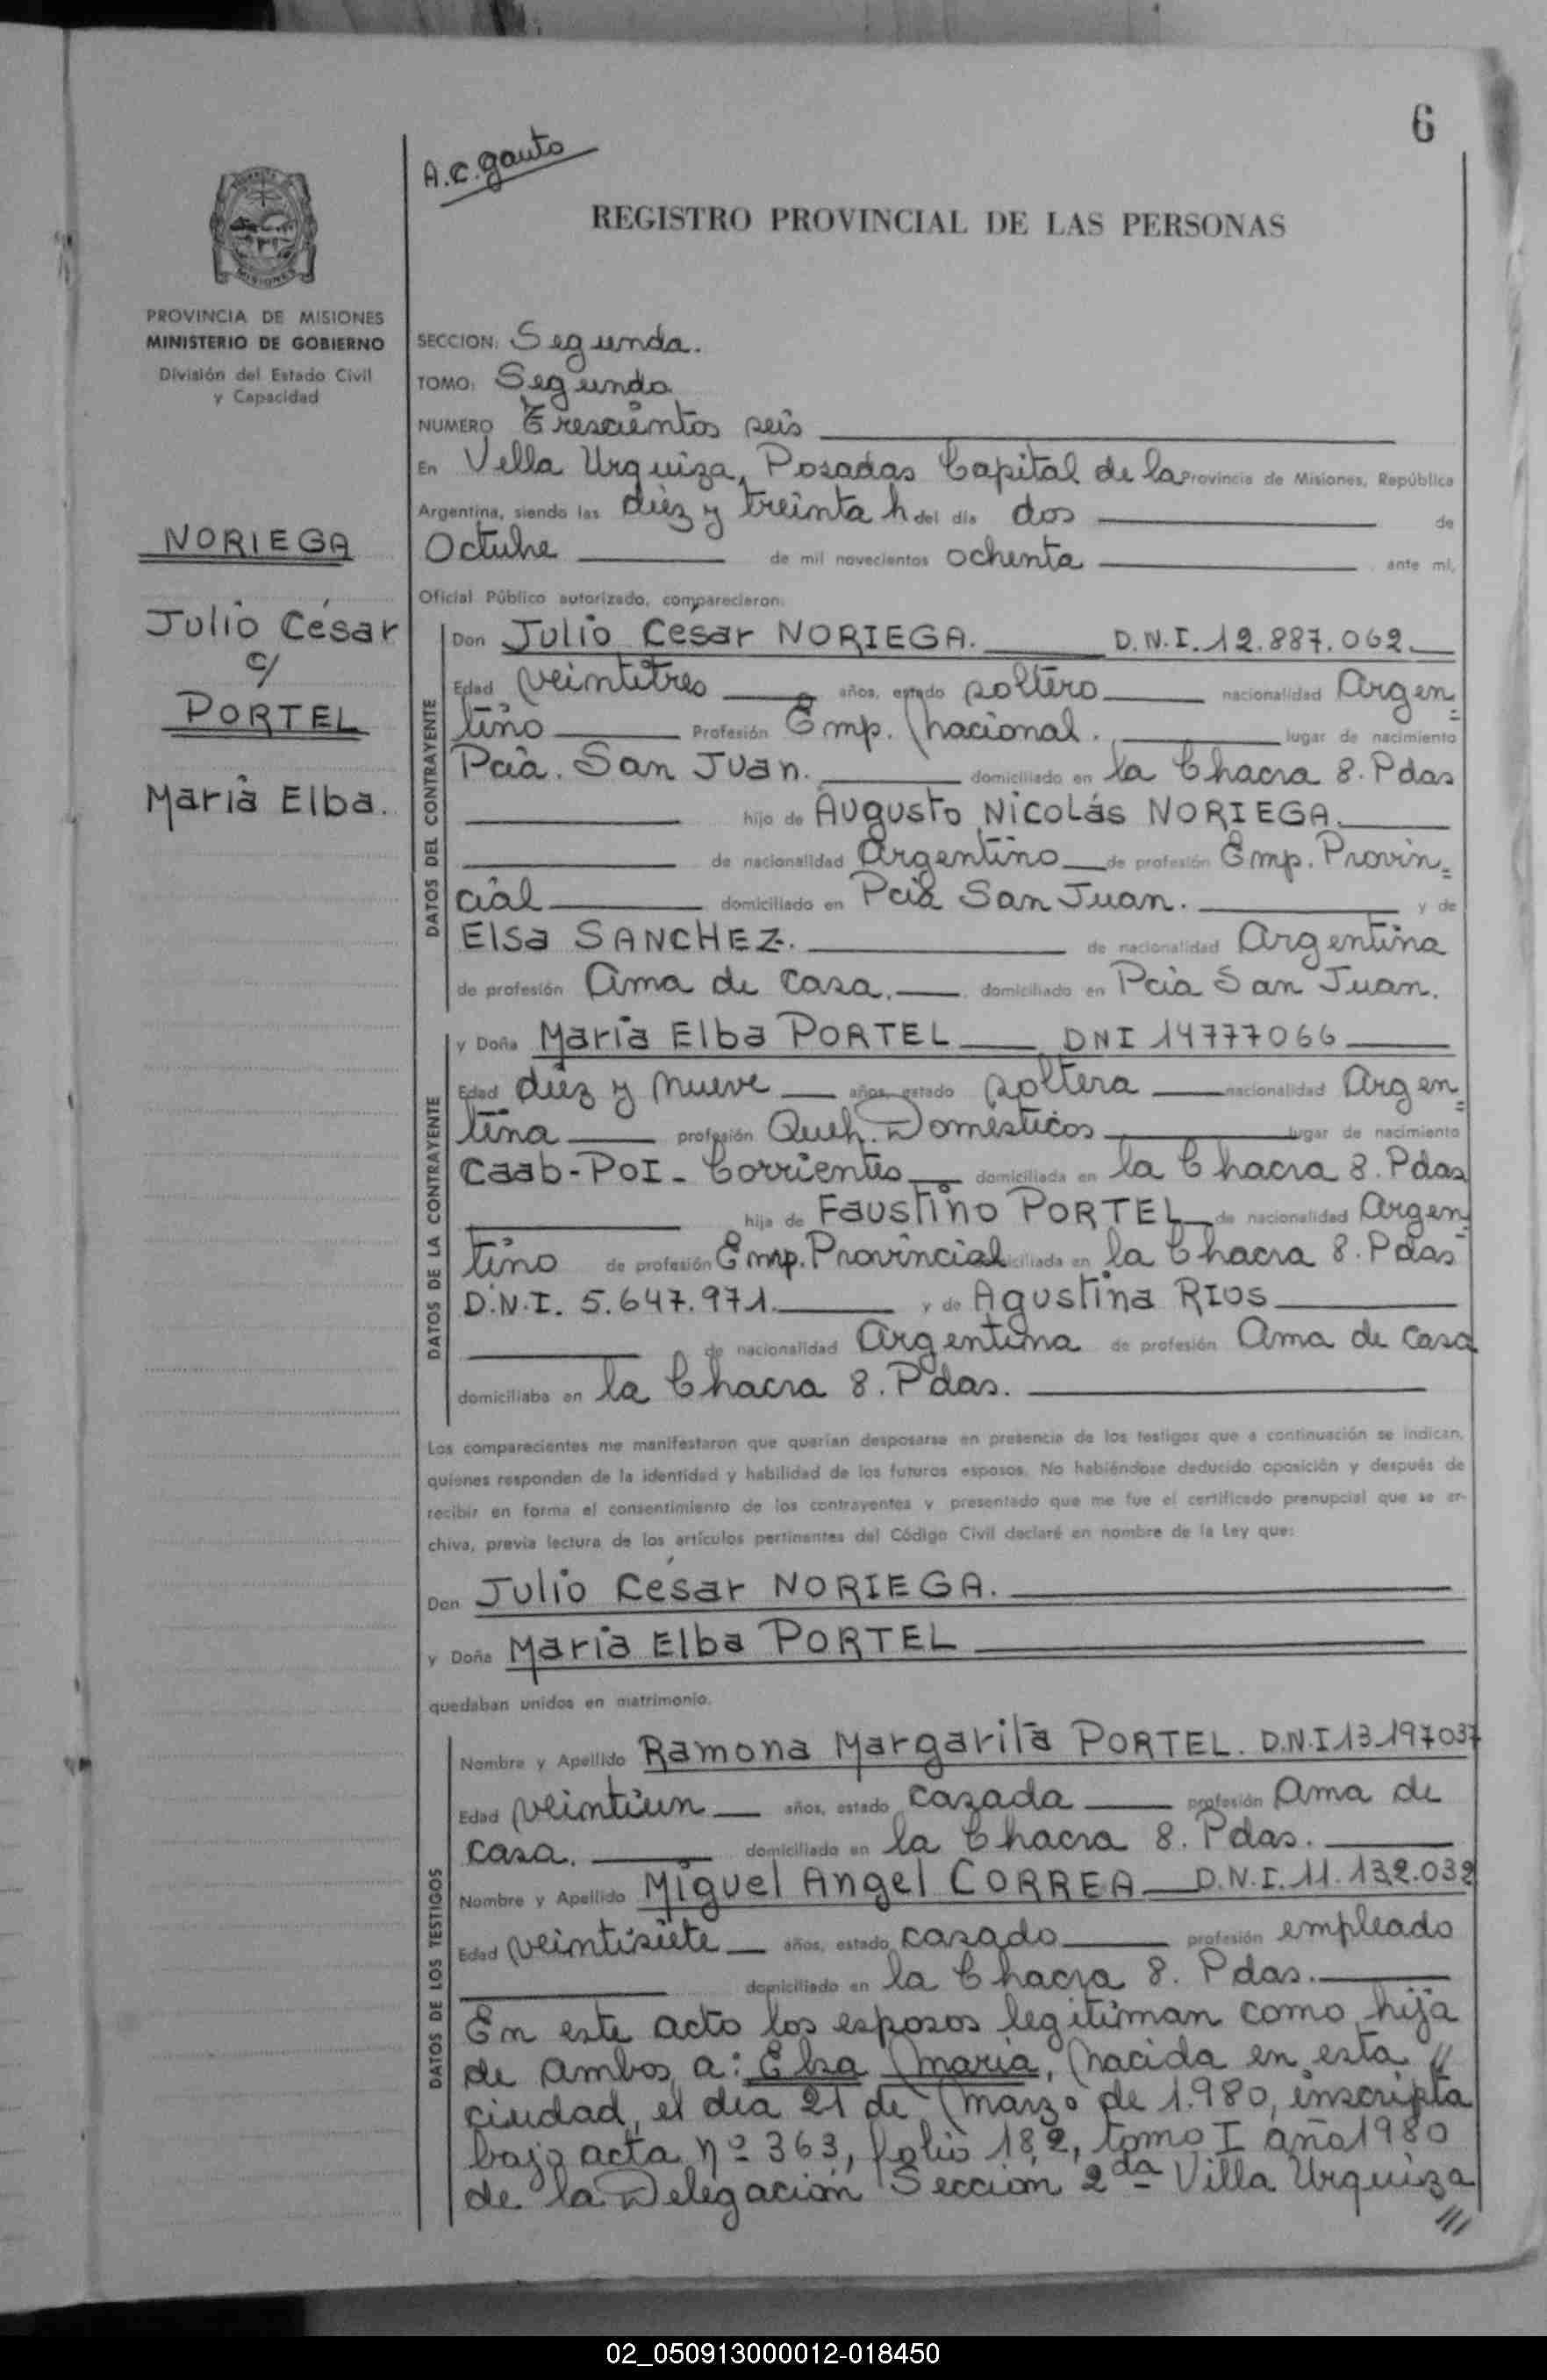 6
A.C. gauto
REGISTRO PROVINCIAL DE LAS PERSONAS
MISIONES
PROVINCIA DE MISIONES
MINISTERIO DE GOBIERNO
División del Estado Civil
y Capacidad
NORIEGA
Julio César
c/
PORTEL
María Elba.
SECCION: Segunda.
TOMO: Segundo
NUMERO Trescientos seis
En Villa Urquiza, Posadas Capital de la Provincia de Misiones, República
Argentina, siendo las diez y treinta h del día dos de
Octubre de mil novecientos ochenta ante mi,
Oficial Público autorizado, comparecieron:
DATOS DEL CONTRAYENTE
Don Julio Cesar NORIEGA. D.N.I. 12.887.062
Edad veintitres años, estado soltero nacionalidad Argen=
tino Profesión Emp. Nacional. lugar de nacimiento
Pcia. San Juan. domiciliado en la Chacra 8. Pdas
hijo de Augusto Nicolás NORIEGA.
de nacionalidad Argentino de profesión Emp. Provin=
cial domiciliado en Pcia San Juan. y de
Elsa SANCHEZ. de nacionalidad Argentina
de profesión Ama de casa. domiciliado en Pcia San Juan.
DATOS DE LA CONTRAYENTE
y Doña María Elba PORTEL DNI 14777066
Edad diez y nueve años, estado soltera nacionalidad Argen=
tina profesión Queh. Domésticos lugar de nacimiento
Caab-Poi- Corrientes domiciliada en la Chacra 8. Pdas
hija de Faustino PORTEL de nacionalidad Argen=
tino de profesión Emp. Provincial domiciliada en la Chacra 8. Pdas
D.N.I. 5.647.971. y de Agustina RIOS
de nacionalidad Argentina de profesión Ama de casa
domiciliaba en la Chacra 8. Pdas.
Los comparecientes me manifestaron que querían desposarse en presencia de los testigos que a continuación se indican,
quienes responden de la identidad y habilidad de los futuros esposos. No habiéndose deducido oposición y después de
recibir en forma el consentimiento de los contrayentes y presentado que me fue el certificado prenupcial que se ar-
chiva, previa lectura de los artículos pertinentes del Código Civil declaré en nombre de la Ley que:
Don Julio César NORIEGA.
y Doña María Elba PORTEL
quedaban unidos en matrimonio.
DATOS DE LOS TESTIGOS
Nombre y Apellido Ramona Margarita PORTEL. D.N.I 13.197037
Edad veintiun años, estado casada profesión Ama de
casa. domiciliado en la Chacra 8. Pdas.
Nombre y Apellido Miguel Angel CORREA D.N.I. 11.132.032
Edad veintisiete años, estado casado profesión empleado
domiciliado en la Chacra 8. Pdas.
En este acto los esposos legitiman como hija
de ambos a: Elsa María, nacida en esta //
ciudad, el día 21 de Marzo de 1.980, inscripta
bajo acta nº 363, folio 182, tomo I año 1980
de la Delegación Sección 2da Villa Urquiza
///
02_050913000012-018450